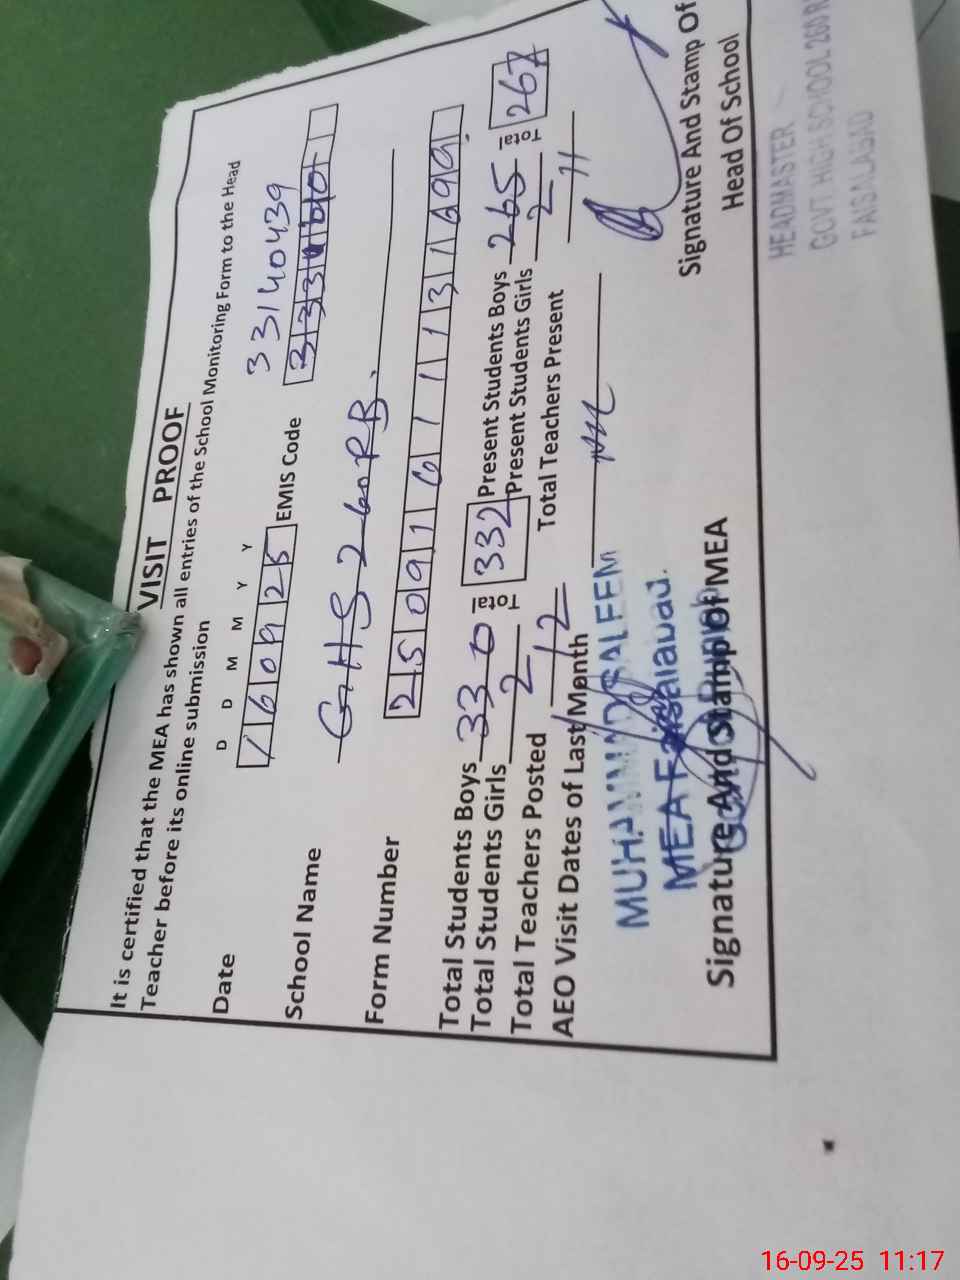 VISIT PROOF
It is certified that the MEA has shown all entries of the School Monitoring Form to the Head
Teacher before its online submission
D D M M Y Y
33140439
Date 160925 EMIS Code
School Name GHS 260RB.
Form Number
Total Students Boys 330 Total 332 Present Students Boys 265 Total 267
Total Students Girls 2 Present Students Girls 2
Total Teachers Posted 12 Total Teachers Present 11
AEO Visit Dates of Last Month
MUHAMMAD SALEEM
MEA Faisalabad.
Signature And Stamp Of MEA
Signature And Stamp Of
Head Of School
HEADMASTER
GOVT. HIGH SCHOOL 260 R
FAISALABAD
16-09-25 11:17